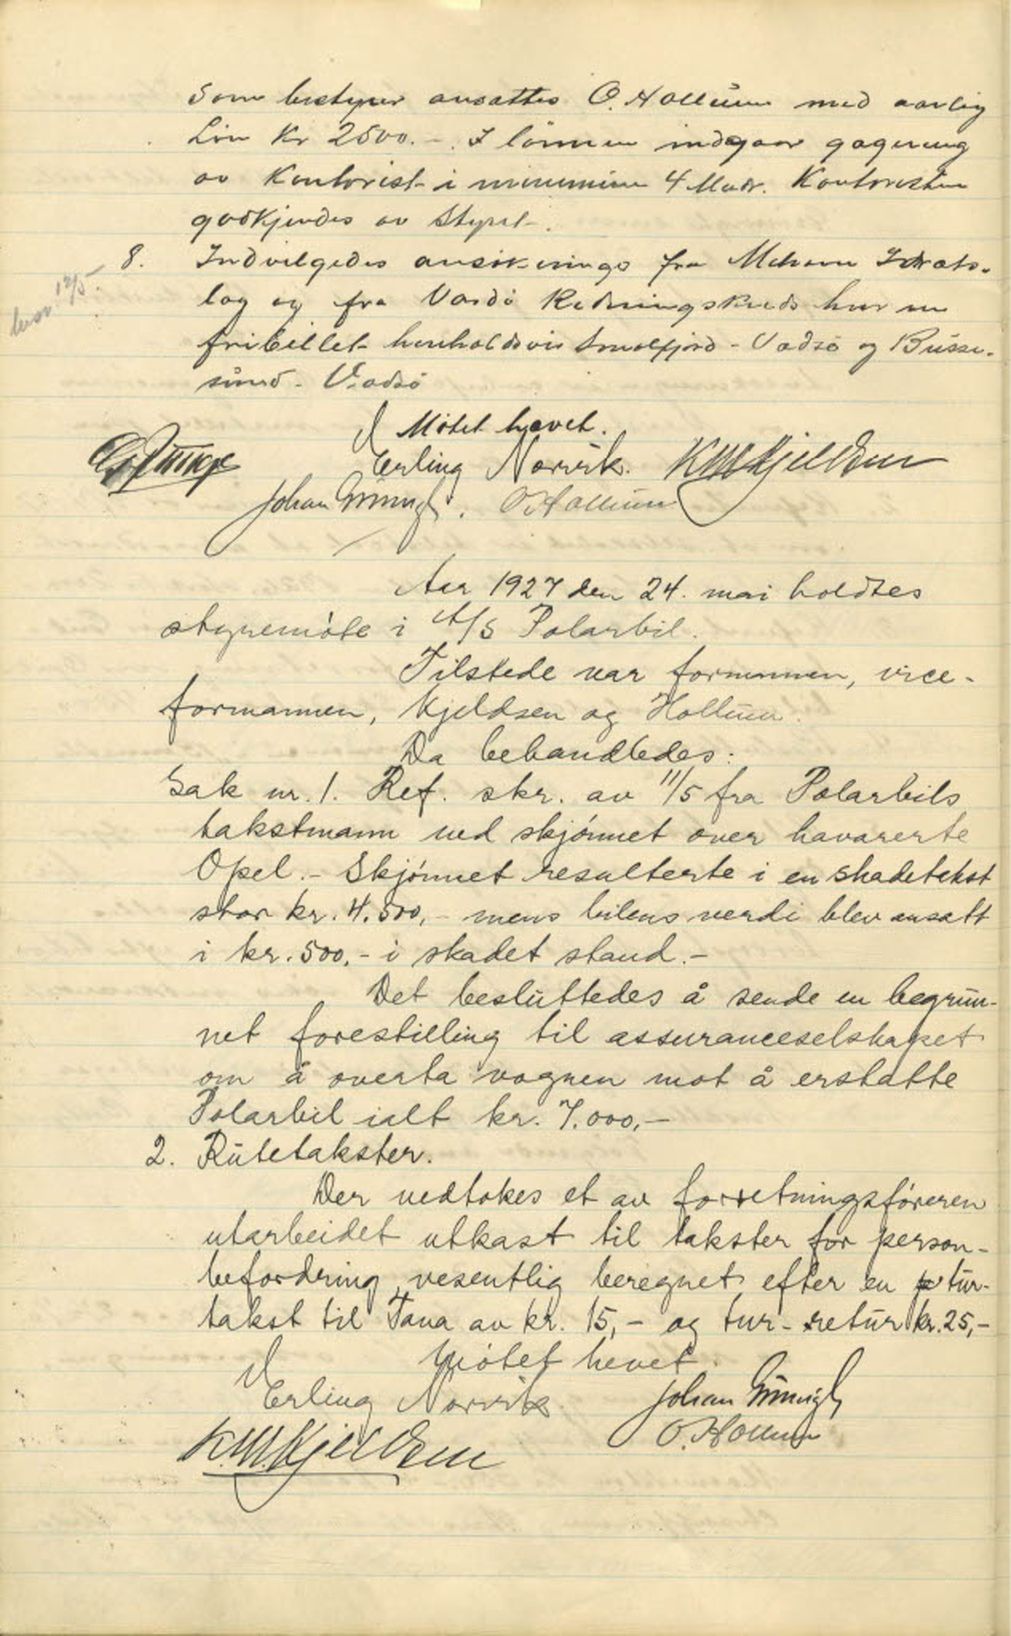 Som bestyrer ansattes O. Hollum med aarlig
Løn Kr 2500.-. I lønnen indgaar gagering
av Kontorist i minimum 4 Mndr. Kontoristen
godkjendes av Styret.
8. Indvilgedes ansøkninge fra Mehavn Idræts-
lag og fra Vardö Redningskreds hver en
fribillet henholdsvis Smalfjord - Vadsö og Busse-
sund - Vadsö
12/5-
Møtet hævet.
Erling Norvik. KMKjeldsen
Johan O Hollum
Aar 1927 den 24. mai holdtes
styremöte i A/S Polarbil.
Tilstede var formannen, vice-
formannen, Kjeldsen og Hollum.
Da behandledes:
Sak nr. 1. Ref. skr. av 11/5 fra Polarbils
takstmann ved skjönnet over havarerte
Opel.- Skjönnet resulterte i en skadetakst
stor kr. 4.500,- mens bilens verdi blev ansatt
i kr. 500,- i skadet stand.-
Det besluttedes å sende en begrun-
net forestilling til assuranceselskapet
om å overta vognen mot å erstatte
Polarbil ialt kr. 7.000,-
2. Rutetakster.
Der vedtokes et av forretningsföreren
utarbeidet utkast til takster for person-
befordring vesentlig beregnet efter en tur-
takst til Tana av kr. 15,- og tur-retur kr. 25,-
Mötet hevet.
Erling Norvik Johan
KMKjeldsen O. Hollum